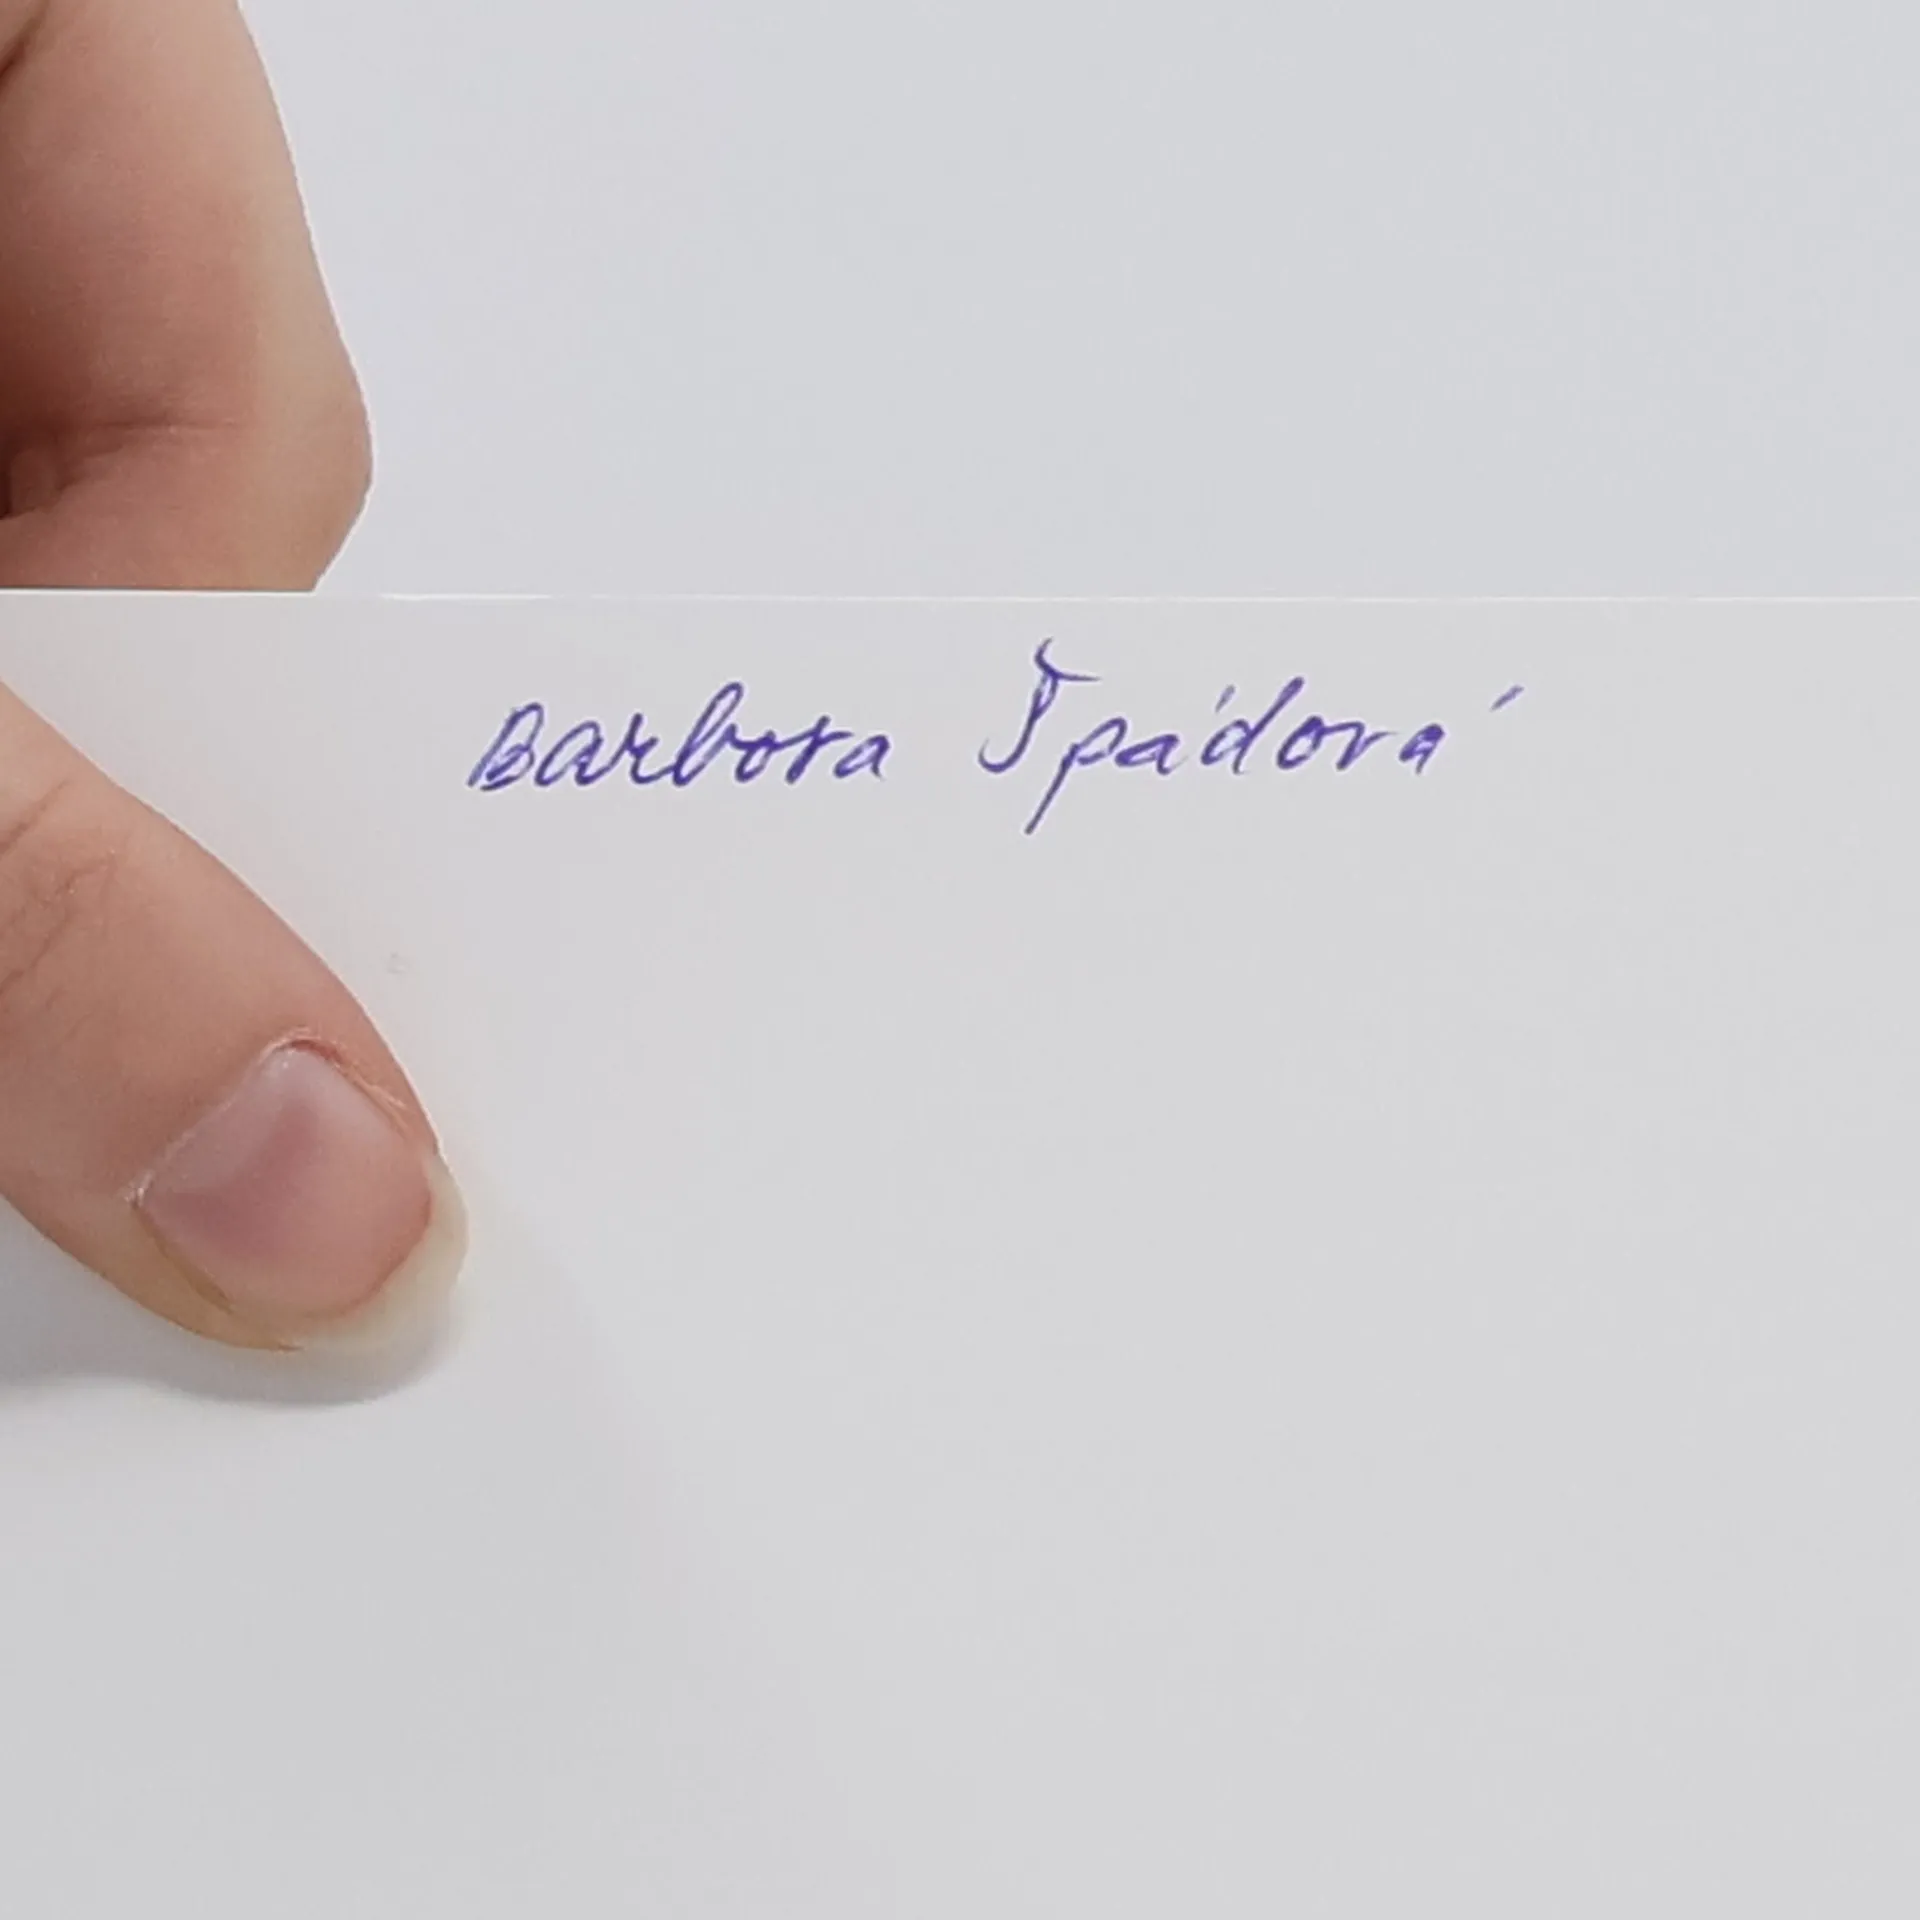 Barbora Špádorá